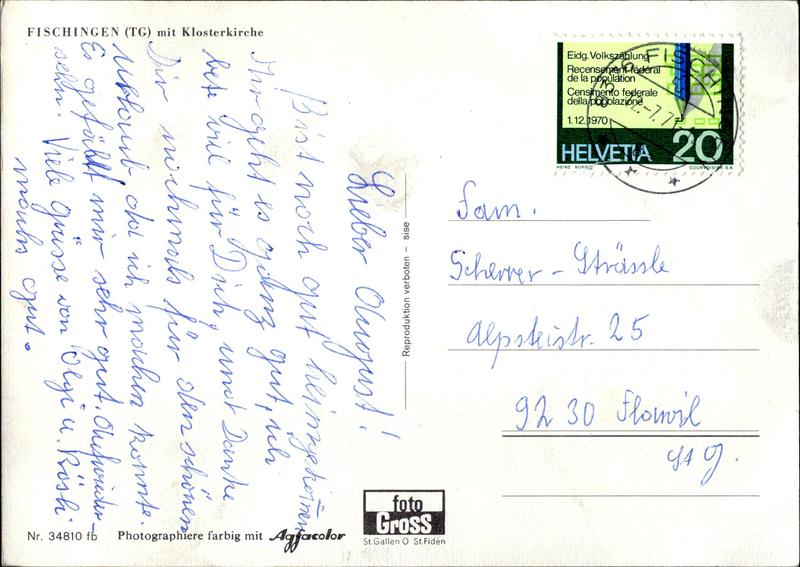 FISCHINGEN (TG) mit Klosterkirche
Lieber August!
Bist noch gut heimgekommen
Ihr geht es ganz gut, ich
bete vil für Dich, und Danke
Dir nochmals für den schönen
Urlaub da ich machen konnte.
Es gefällt mir sehr gut. Aufwieder-
sehn. Viele Grüsse von Olgi u. Rösli.
machs gut.
Reproduktion verboten – sise
Eidg. Volkszählung
Recensement fédéral
de la population
Censimento federale
della popolazione
1.12.1970
HELVETIA 20
HEINZ BÜRGI COURVOISIER S.A.
Fam.
Scherrer-Strässle
Alpsteinstr. 25
9230 Flawil
St G.
foto
Gross
St.Gallen O St.Fiden
Nr. 34810 fb Photographiere farbig mit Agfacolor